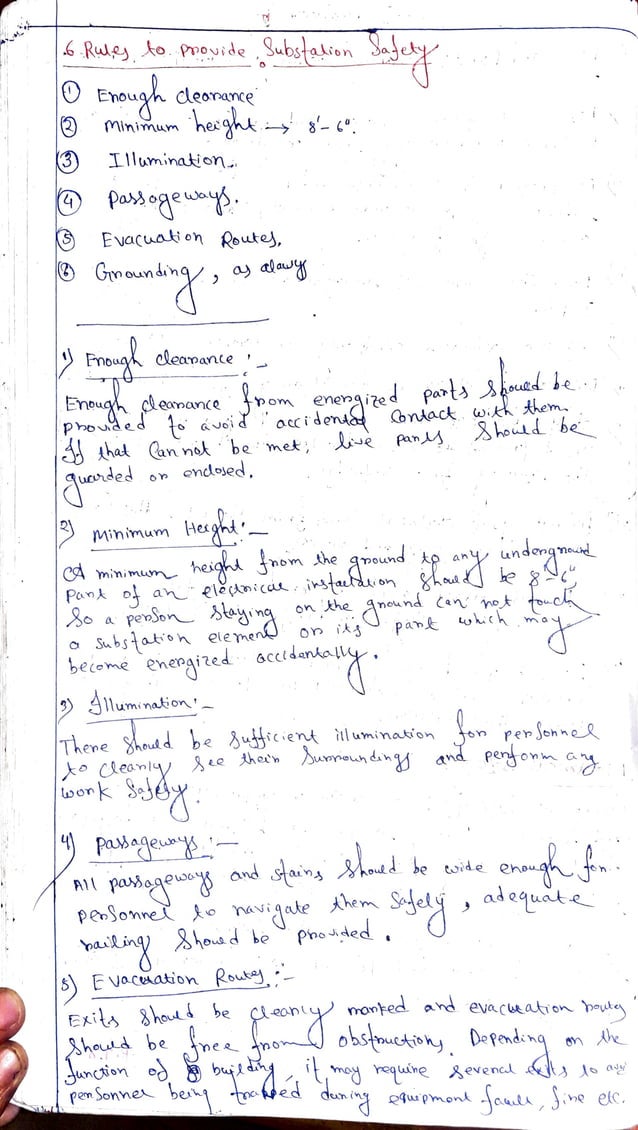 6 Rules to provide Substation Safety
① Enough clearance
② Minimum height → 8'-6".
③ Illumination.
④ Passageways.
⑤ Evacuation Routes.
⑥ Grounding, as alawys
1) Enough clearance :-
Enough clearance from energized parts should be
provided to avoid accidental contact with them.
If that cannot be met, live parts should be
guarded or enclosed.
2) Minimum Height :-
A minimum height from the ground to any underground
part of an electrical installation should be 8'-6"
So a person staying on the ground can not touch
a substation element or its part which may
become energized accidentally.
3) Illumination :-
There should be sufficient illumination for personnel
to clearly see their surroundings and perform any
work safely.
4) Passageways :-
All passageways and stairs should be wide enough for
personnel to navigate them safely, adequate
railing should be provided.
5) Evacuation Routes :-
Exits should be clearly marked and evacuation routes
should be free from obstructions. Depending on the
function of building, it may require several exits to
personnel being trapped during equipment fault, fire etc.